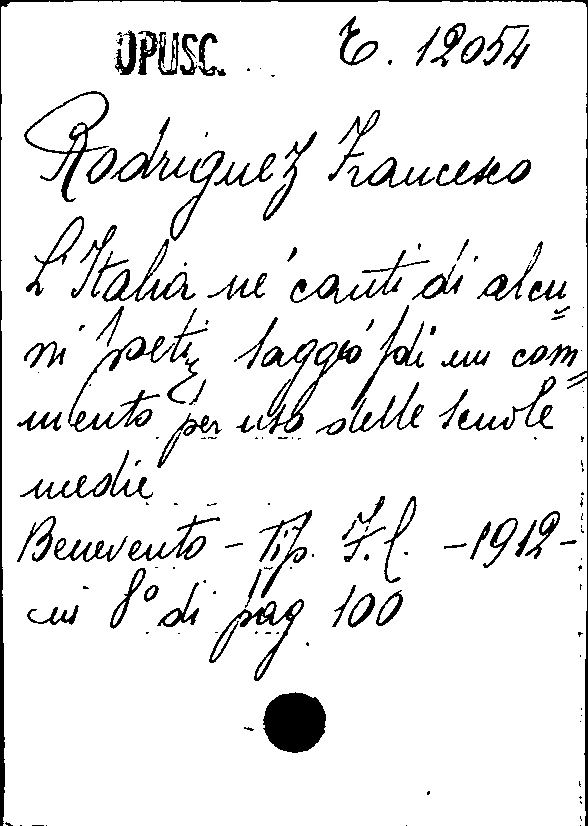 OPUSC. C. 12054
Rodriguez Francesco
L'Italia ne' canti di alcu=
ni poeti, saggio di un com=
mento per uso delle scuole
medie
Benevento - Tip. F.C. - 1912 -
in 8° di pag 100